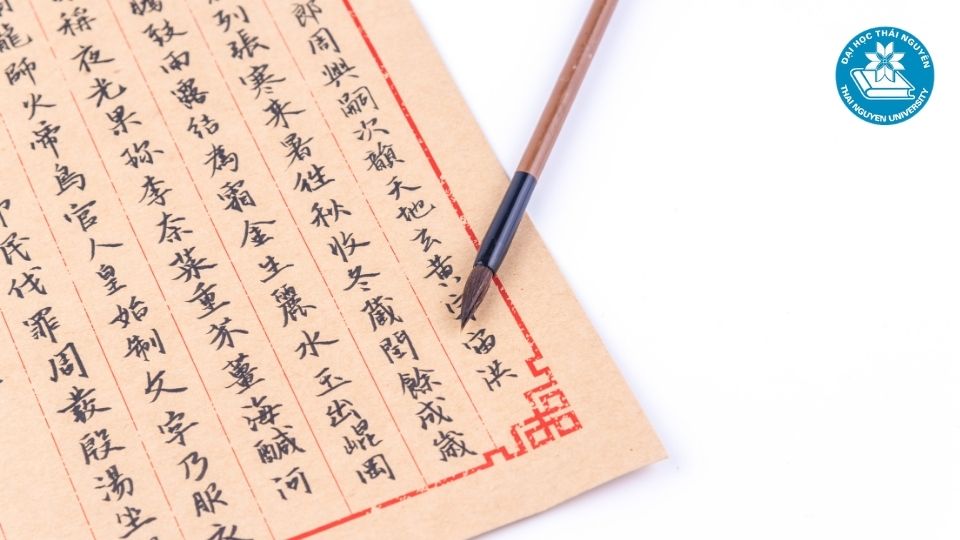 郎周興嗣次韻天地玄黃宇宙洪
列張寒来暑往秋收冬藏閏餘成歲
騰致雨露結為霜金生麗水玉出崐岡
稱夜光果珎李柰菜重芥薑海醎河
龍師火帝鳥官人皇始制文字乃服衣
民伐罪周發殷湯坐
ĐẠI HỌC THÁI NGUYÊN
THAI NGUYEN UNIVERSITY